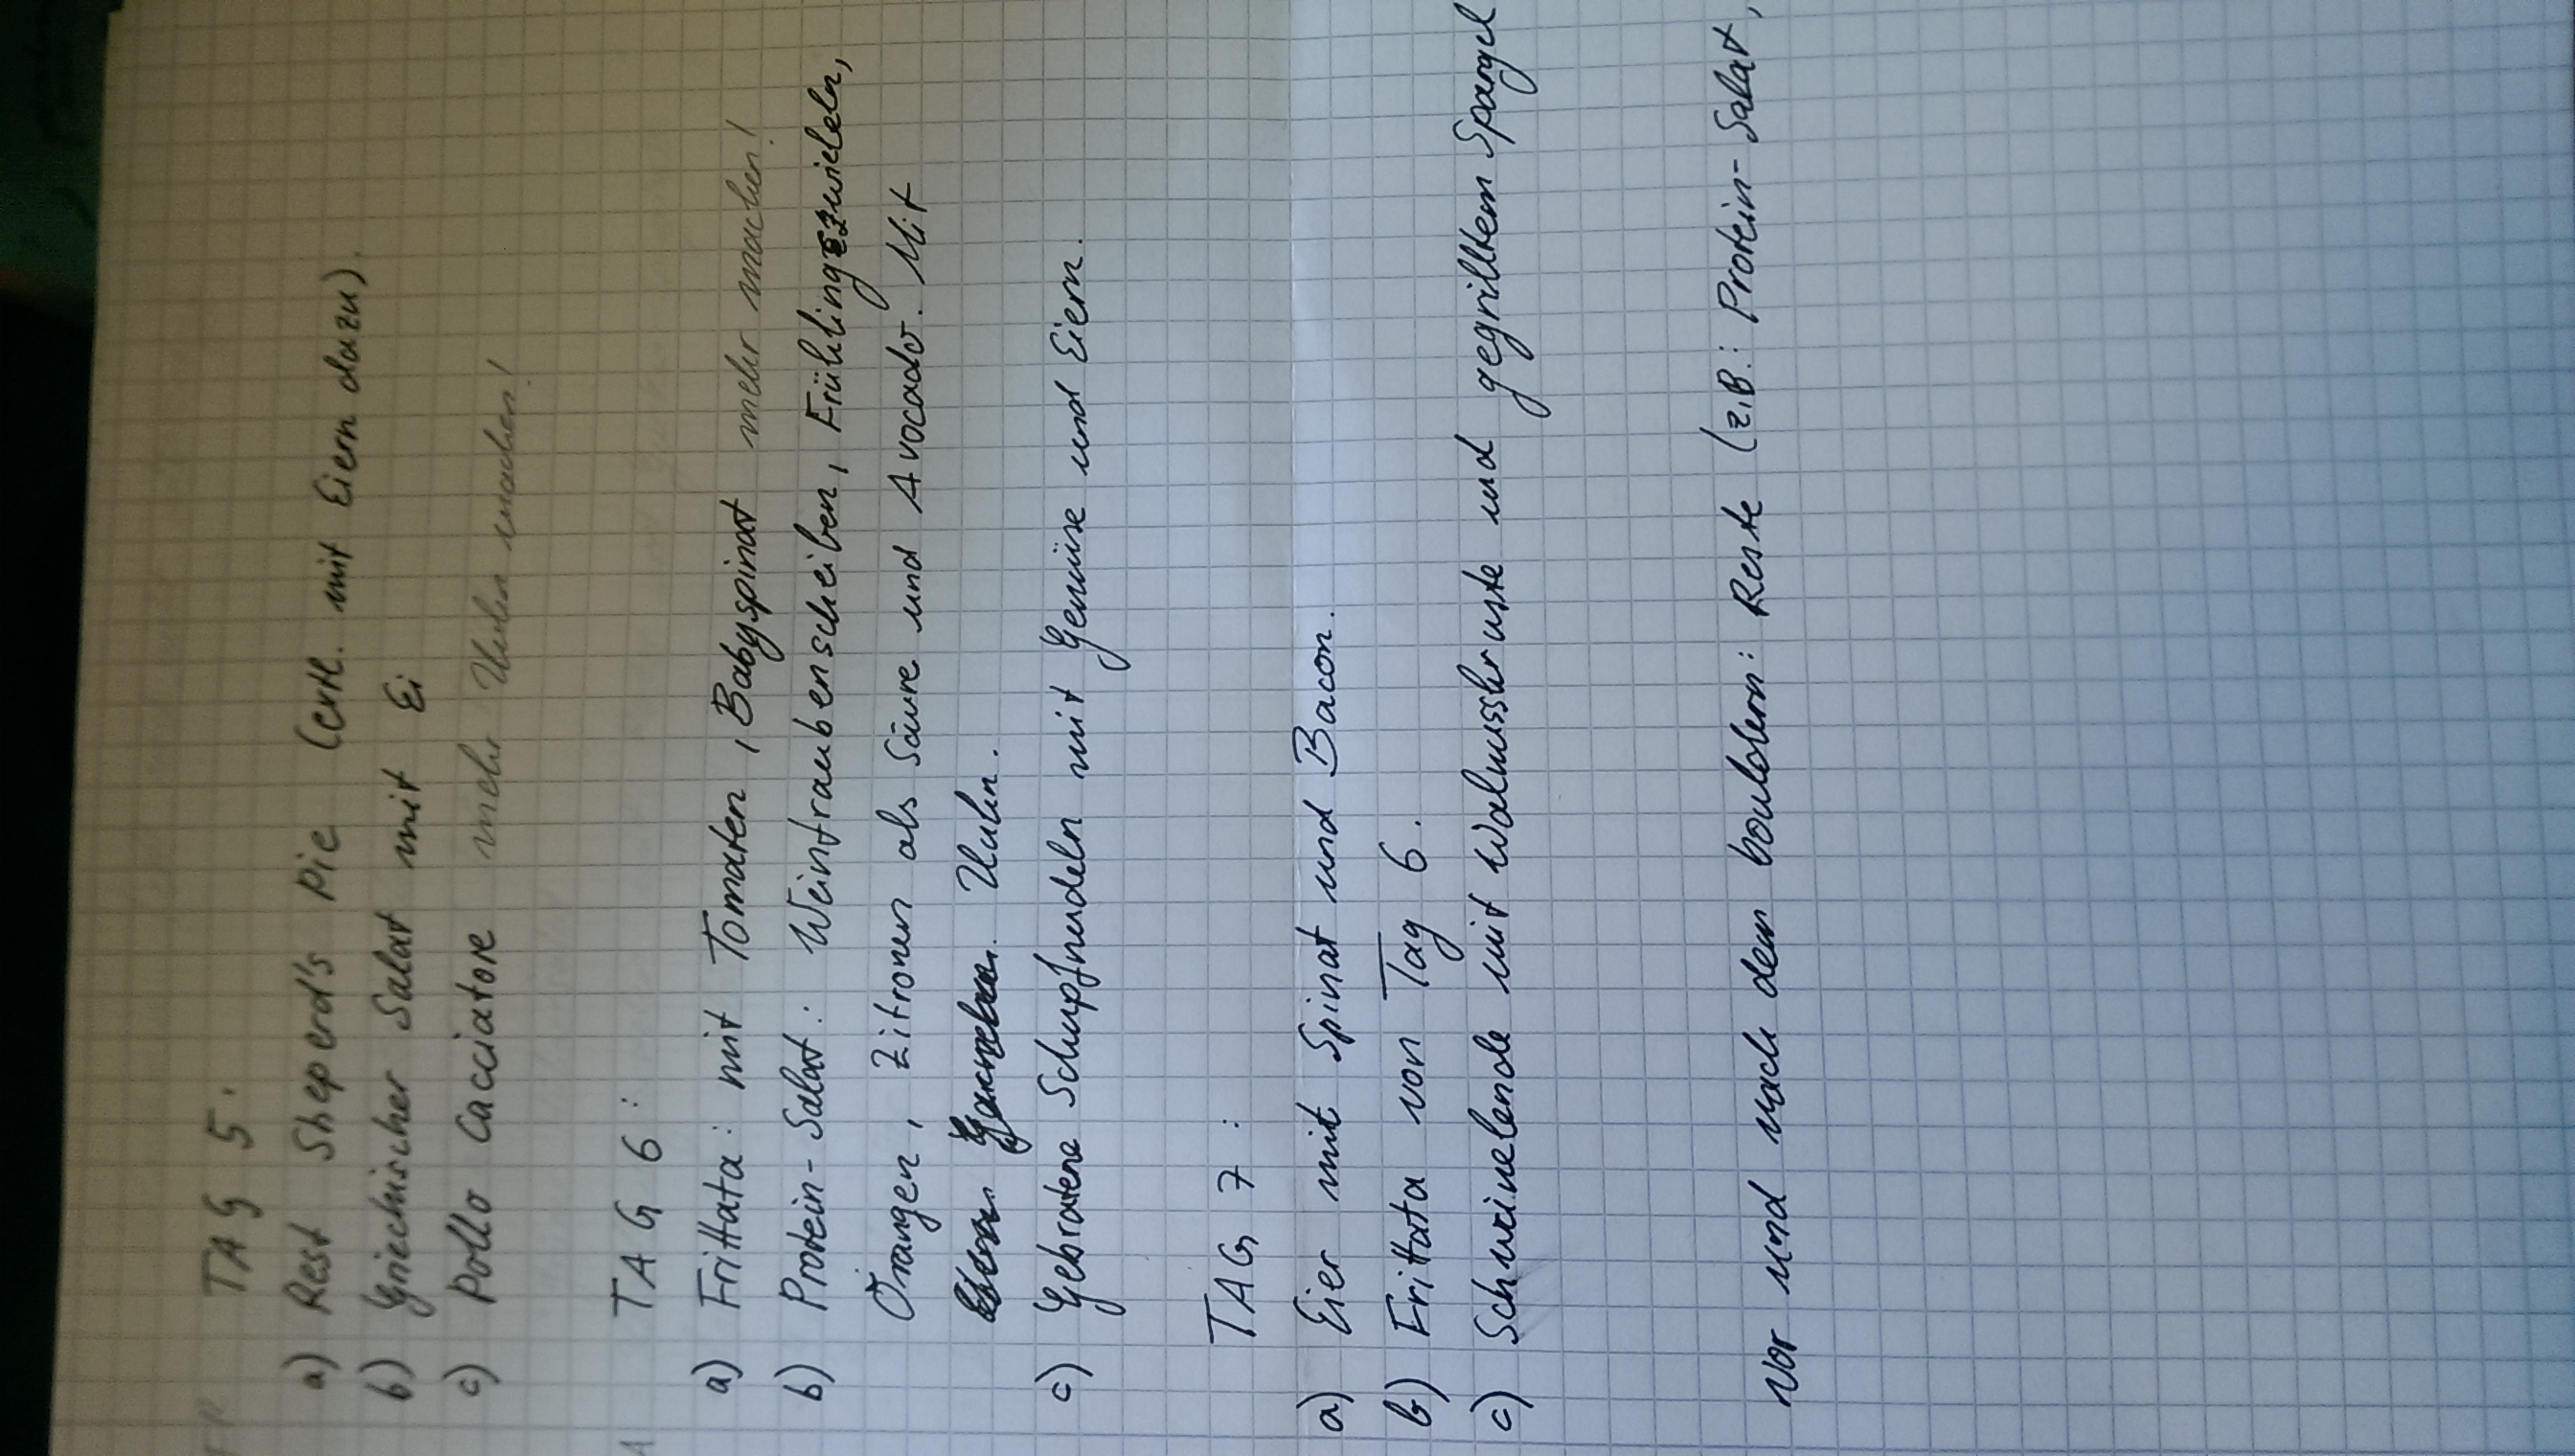 TAG 5:
a) Rest Sheperd's Pie (evtl. mit Eiern dazu).
b) Griechischer Salat mit Ei
c) Pollo Cacciatore mehr Huhn machen!
TAG 6:
a) Frittata: mit Tomaten, Babyspinat mehr machen!
b) Protein-Salat: Weintraubenscheiben, Frühlingszwiebeln,
Orangen, Zitronen als Säure und Avocado. Mit
Huhn.
c) Gebratene Schupfnudeln mit Gemüse und Eiern.
TAG 7:
a) Eier mit Spinat und Bacon.
b) Frittata von Tag 6.
c) Schweinelende mit Walnusskruste und gegrilltem Spargel
Vor und nach dem bouldern: Reste (z.B.: Protein-Salat,